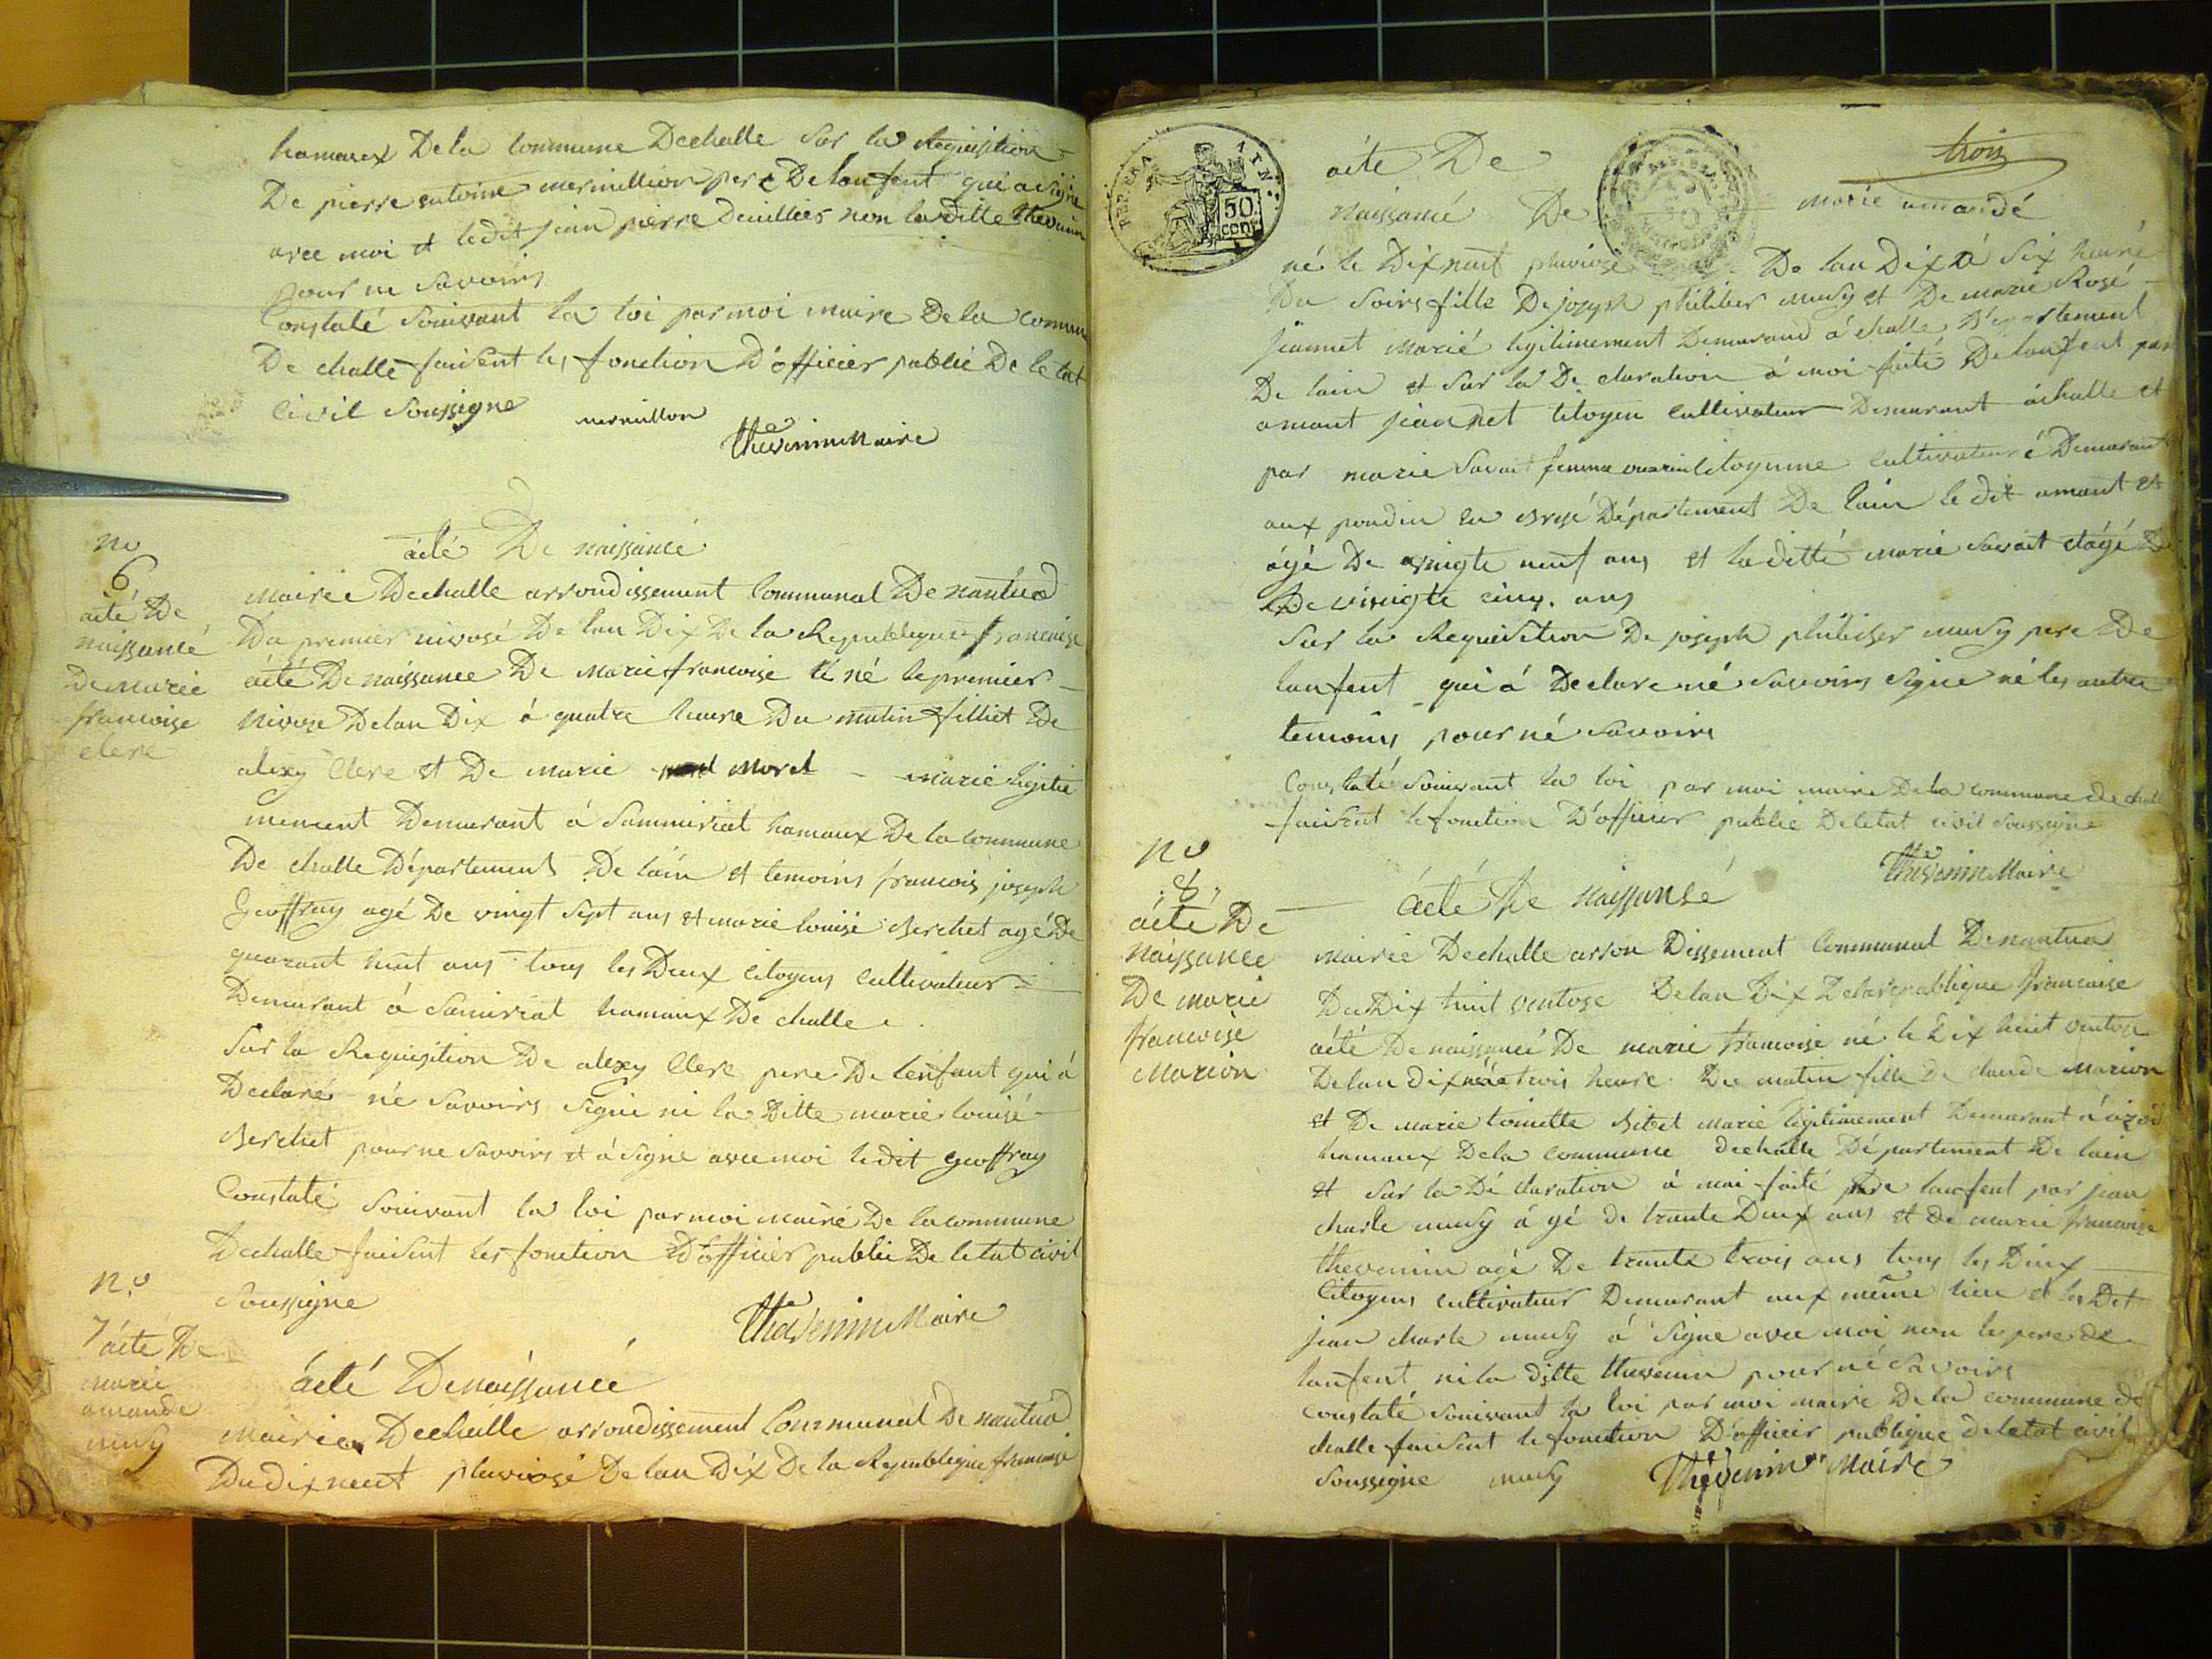 hamaux De la Commune Dechalle Sur la Requisition
De pierre antoine mermillion pere De lanfent qui a signe
avec moi et ledit jean pierre Deuillies non la ditte thevenin
pour ne Savoirs
Constaté Souivant la loi par moi maire De la Commune
De challe faisent les fonction D'officier public De le tat
Civil Soussigne mermillon
Thévenin Maire
no
6
acté De
naissancé
De Marie
francoise
clere
acté De naissancé
Mairie Dechalle arrondissement Communal De nantua
Du premier nivosé De lan Dix De la Republique francaise
acté De naissance De Marie francoise né le premier
Nivose De lan Dix á quatre heure Du matin filliet De
alexy Clere et De marie morel marie ligiti
mement Demurant á Sammiriat hamaux De la commune
De challe Département De láin et temoins francois joseph
Geoffray agé De vingt Sept ans et marie louise Berchet agé De
quarant huit ans tous les Deux Citoyens cultivateur
Demurant á Samiriat hamaux De challe
Sur la Requisition De alexy Clere pere De lenfant qui á
Declaré né Savoirs Signe ni la Ditte marie louisé
Berchet pour ne Savoirs et á Signe avec moi ledit Geoffray
Constaté Souivant la loi par moi mairé De la commune
Dechalle faisent les fonction D'officier public De letat civil
Soussigne
Thévenin Maire
no
7 acté De
marie
amande
musy
ácté Denáissancé
Mairie Dechalle arrondissement Communal De nantua
Du dix neuf pluviosé De lan Dix De la Republique francaisé
REP. FRA
50
cent
trois
acte De
naissancé De marie amandé
né le Dix neuf pluviose De lan Dix á Six heuré
Du Soirs fille De joseph philiber musy et De marie Rosé
jeannet marié legitimement Demurand á challe Departement
De lain et Sur la De claration á moi faité De lanfent par
amant jeannet Citoyen Cultivateur Demurant áchalle et
par marie Savait femme Citoyenne cultivateuré Demurant
aux poudin Département De láin le dit amant et
ágé De vingte neuf ans et la ditté marie savait etágé De
De vingte cinq. ans
Sur la Requisition De joseph philiber musy pere De
lanfent qui á Declare né Savoirs Signe né les autre
temoins pour né Savoirs
Constaté Souivant la loi par moi maire De la commune de challe
faisent le fonction D'officier public De letat civil Soussigne
Thévenin Maire
no
8
ácté De
naissance
De marie
francoisé
Marion
ácté De naissansé
Mairie Dechalle arron Dissement Communal De nantua
Du Dix huit Ventose De lan Dix De la republique francaise
acté De naissancé De marie francoise né le Dix huit ventose
De lan dix á trois heure Du matin fille De claude Marion
et De marie toinette Bibet marié legitimement Demurant á
hamaux De la commune dechalle Département De lain
et Sur la Dé claration á moi faité lanfent par jean
charle musy á gé de trante Deux ans et de marie francoise
thevenin agé De trante trois ans tous les Deux
Citoyens cultivateur Demurant aux même lieu et les Dit
jean charle musy á Signe avec moi non le pere de
lanfent ni la ditte thevenin pour né Savoirs
Constaté Souivant la loi par moi maire De la commune de
challe faisent le fonction D'officier publique deletat civil
Soussigne musy Thévenin Maire